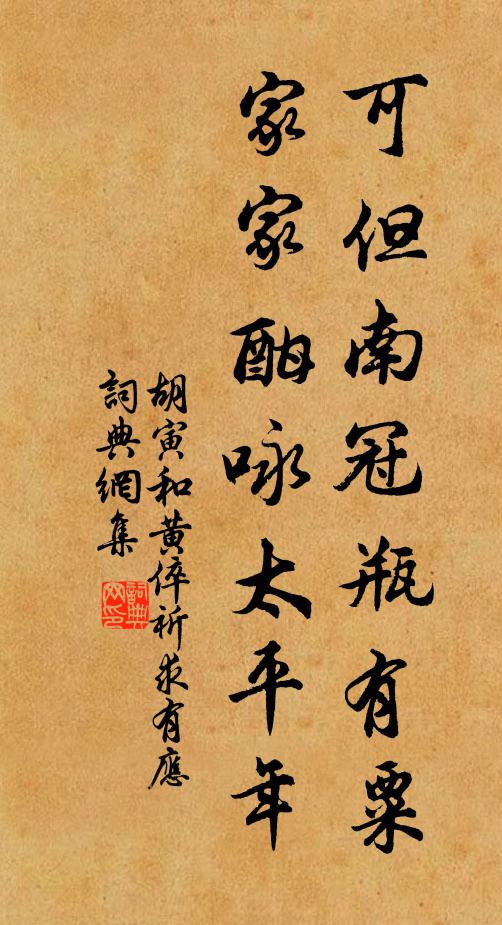 可但南冠瓶有粟
家家酣咏太平年
胡寅和黄倅祈求有應
詞典網集
詞典网印